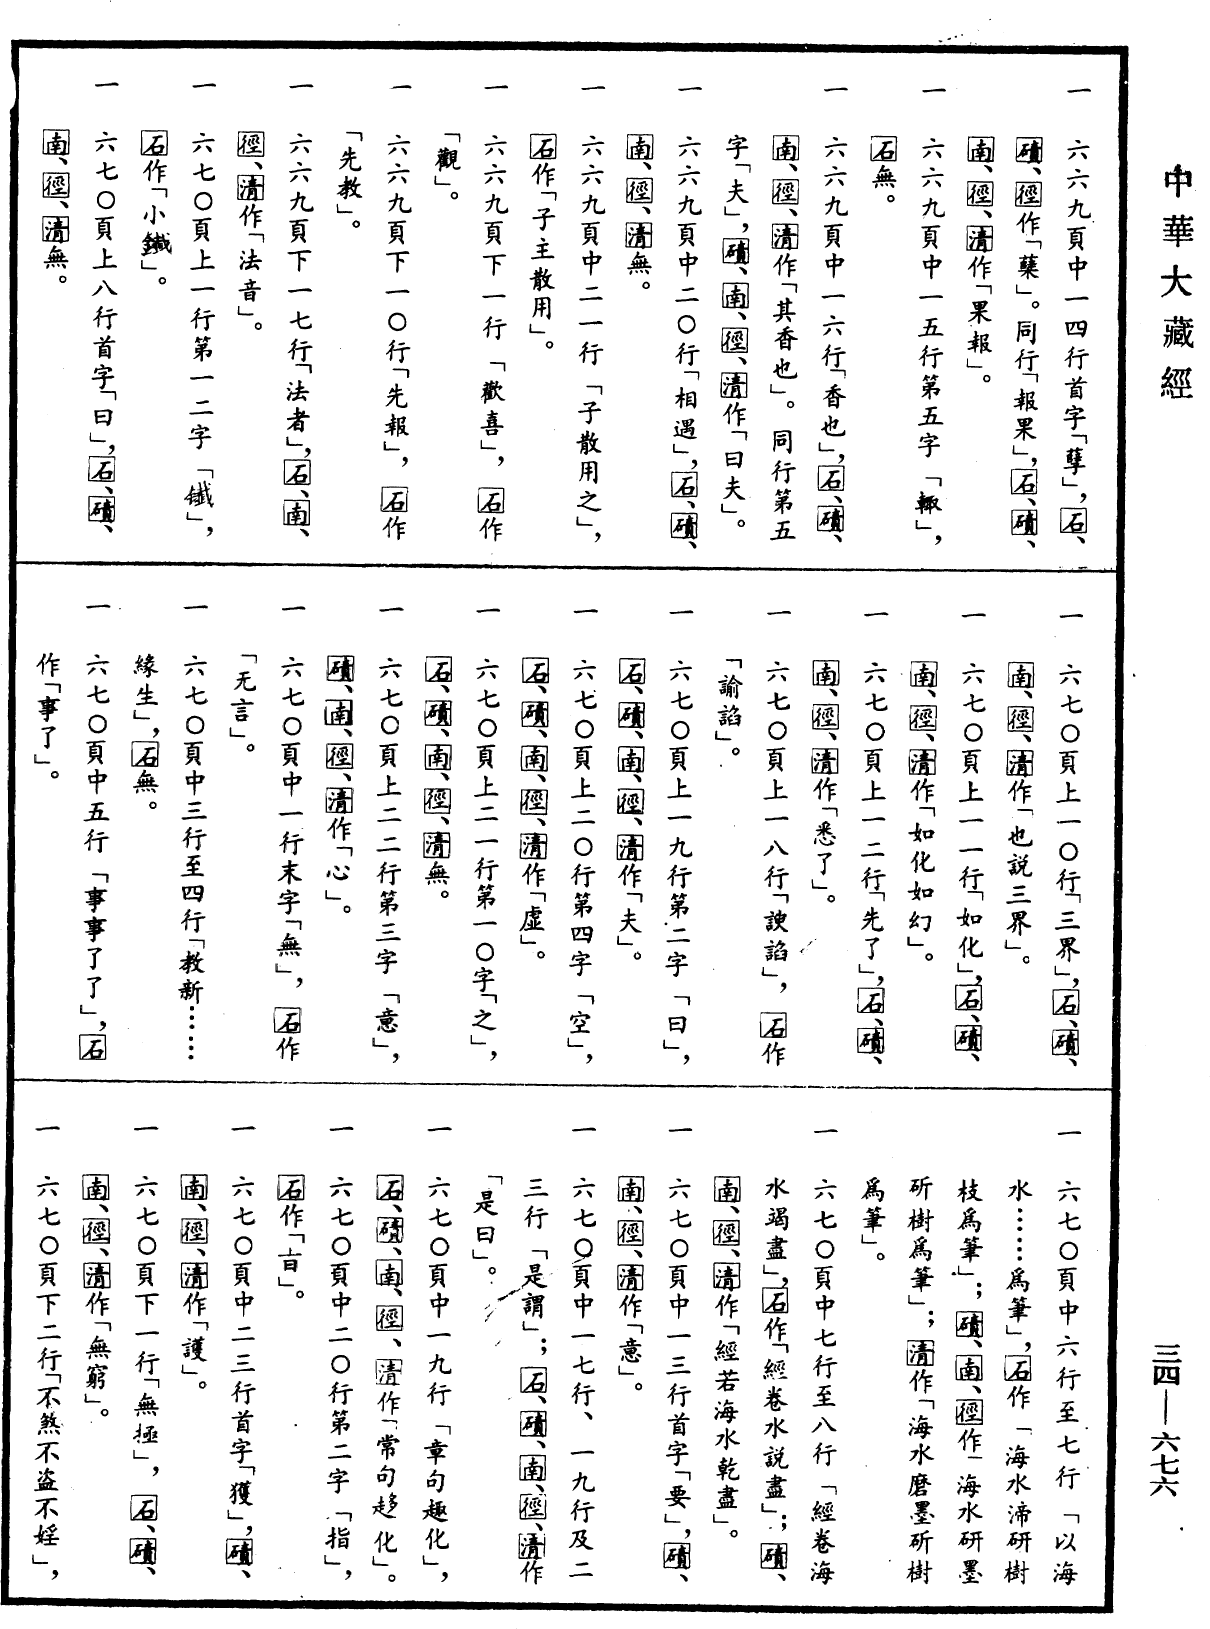 中華大藏經
三四—六七六
一 六六九頁中一四行首字「孽」，石、
磧、徑作「蘖」。同行「報果」，石、磧、
南、徑、清作「果報」。
一 六六九頁中一五行第五字「輙」，
石無。
一 六六九頁中一六行「香也」，石、磧、
南、徑、清作「其香也」。同行第五
字「夫」，磧、南、徑、清作「曰夫」。
一 六六九頁中二〇行「相遇」，石、磧、
南、徑、清無。
一 六六九頁中二一行「子散用之」，
石作「子主散用」。
一 六六九頁下一行「歡喜」，石作
「觀」。
一 六六九頁下一〇行「先報」，石作
「先教」。
一 六六九頁下一七行「法者」，石、南、
徑、清作「法音」。
一 六七〇頁上一行第一二字「鑯」，
石作「小鍼」。
一 六七〇頁上八行首字「曰」，石、磧、
南、徑、清無。
一 六七〇頁上一〇行「三界」，石、磧、
南、徑、清作「也説三界」。
一 六七〇頁上一一行「如化」，石、磧、
南、徑、清作「如化如幻」。
一 六七〇頁上一二行「先了」，石、磧、
南、徑、清作「悉了」。
一 六七〇頁上一八行「諛諂」，石作
「諭諂」。
一 六七〇頁上一九行第二字「曰」，
石、磧、南、徑、清作「夫」。
一 六七〇頁上二〇行第四字「空」，
石、磧、南、徑、清作「虛」。
一 六七〇頁上二一行第一〇字「之」，
石、磧、南、徑、清無。
一 六七〇頁上二二行第三字「意」，
磧、南、徑、清作「心」。
一 六七〇頁中一行末字「無」，石作
「无言」。
一 六七〇頁中三行至四行「教新……
緣生」，石無。
一 六七〇頁中五行「事事了了」，石
作「事了」。
一 六七〇頁中六行至七行「以海
水……爲筆」，石作「海水渧研樹
枝爲筆」；磧、南、徑作「海水研墨
斫樹爲筆」；清作「海水磨墨斫樹
爲筆」。
一 六七〇頁中七行至八行「經卷海
水竭盡」，石作「經卷水説盡」；磧、
南、徑、清作「經若海水乾盡」。
一 六七〇頁中一三行首字「要」，磧、
南、徑、清作「意」。
一 六七〇頁中一七行、一九行及二
三行「是謂」；石、磧、南、徑、清作
「是曰」。
一 六七〇頁中一九行「章句趣化」，
石、磧、南、徑、清作「常句趍化」。
一 六七〇頁中二〇行第二字「指」，
石作「㫖」。
一 六七〇頁中二三行首字「獲」，磧、
南、徑、清作「護」。
一 六七〇頁下一行「無極」，石、磧、
南、徑、清作「無窮」。
一 六七〇頁下二行「不煞不盗不婬」，